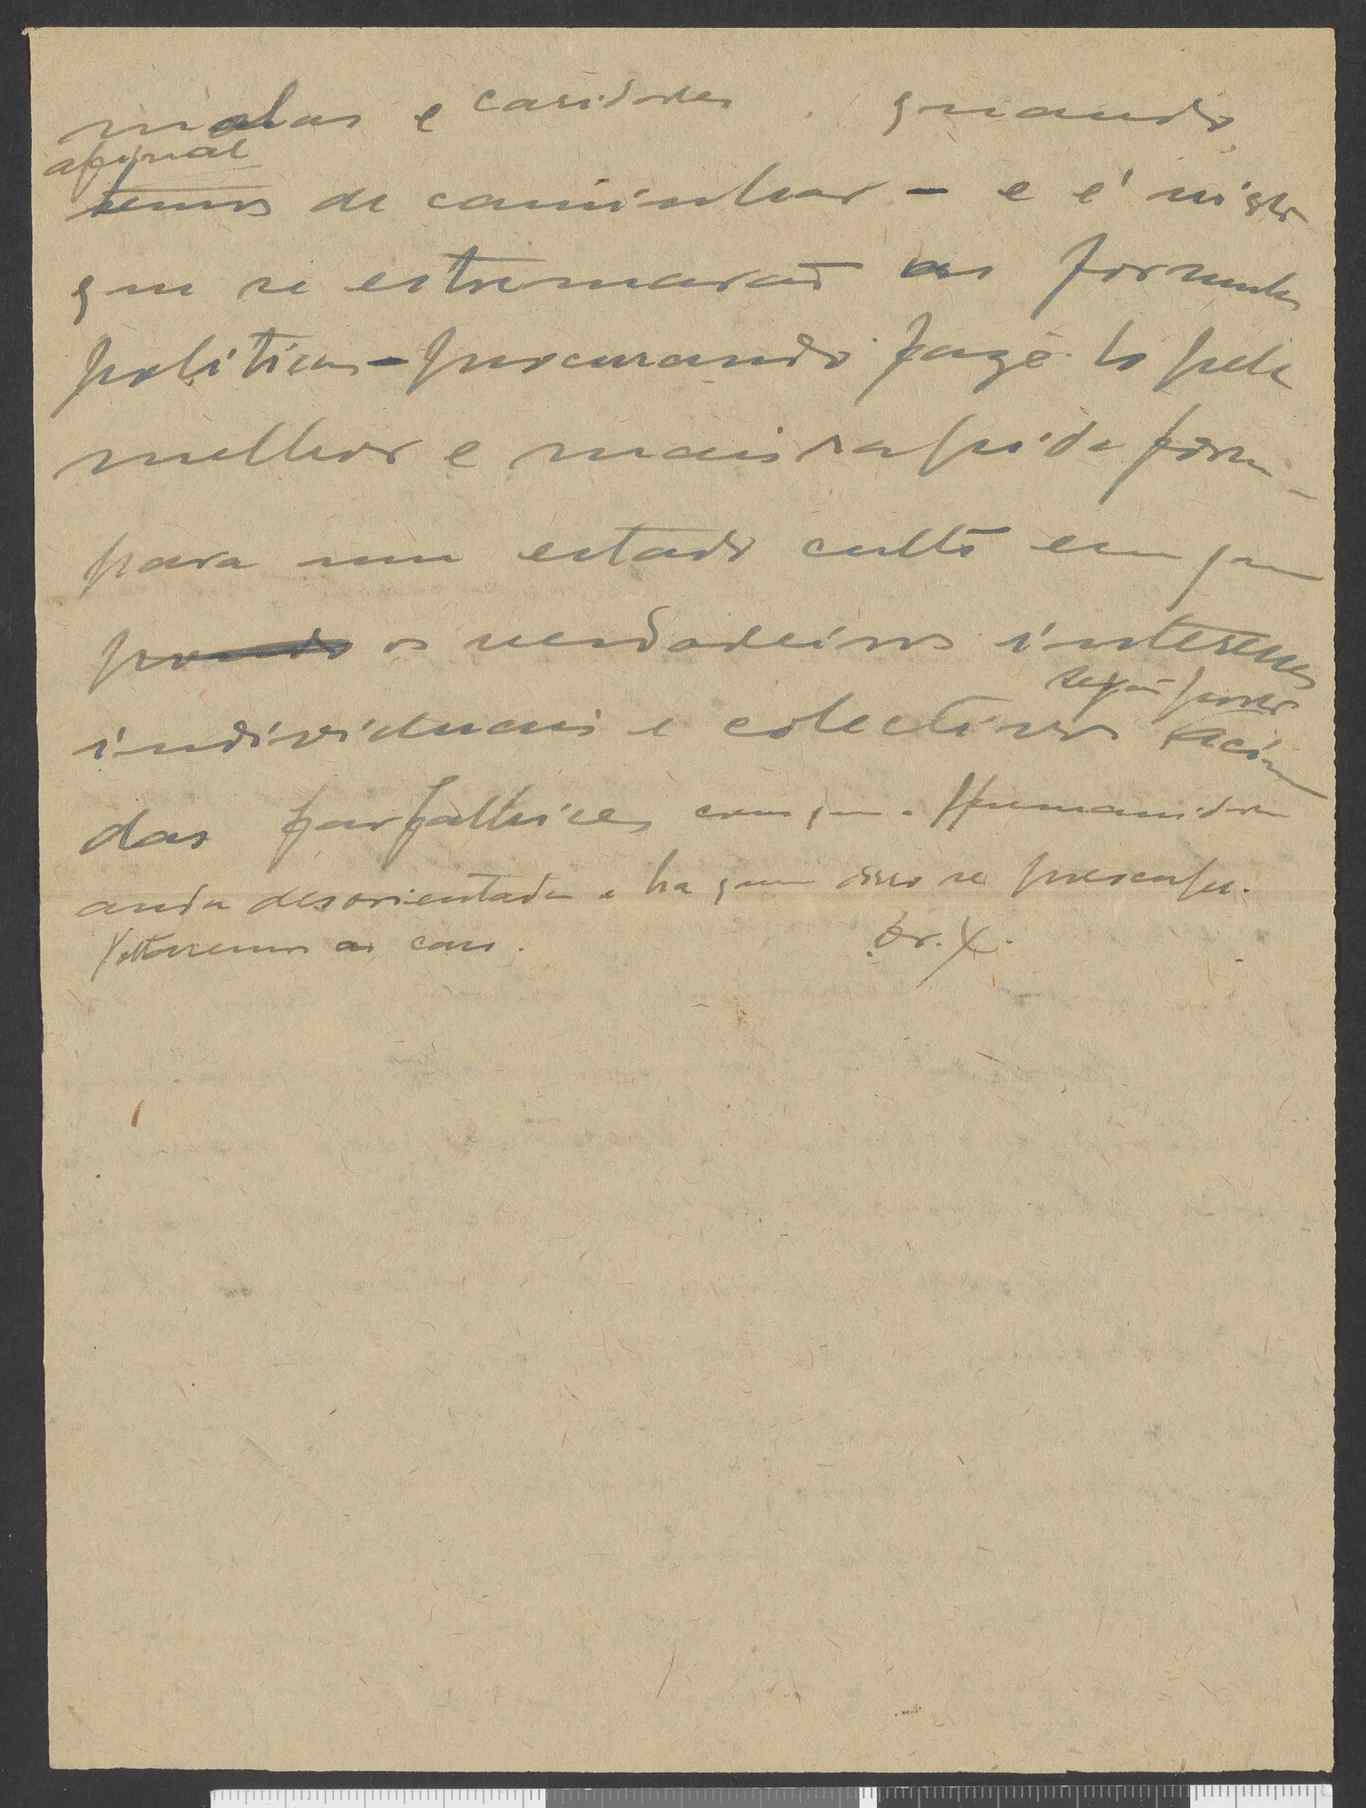 malas e caridades. quando,
afinal
temos de caminhar - e é nisto
que se estremarão as formulas
politicas - procurando fazê-lo pela
melhor e mais rapida forma
para um estado culto em que
os verdadeiros interesses
sejam postos
individuais e colectivos acima
das farfalhices com que a Humanidade
anda desorientada e ha quem disso se preocupe.
Voltaremos ao caso. Dr. X.